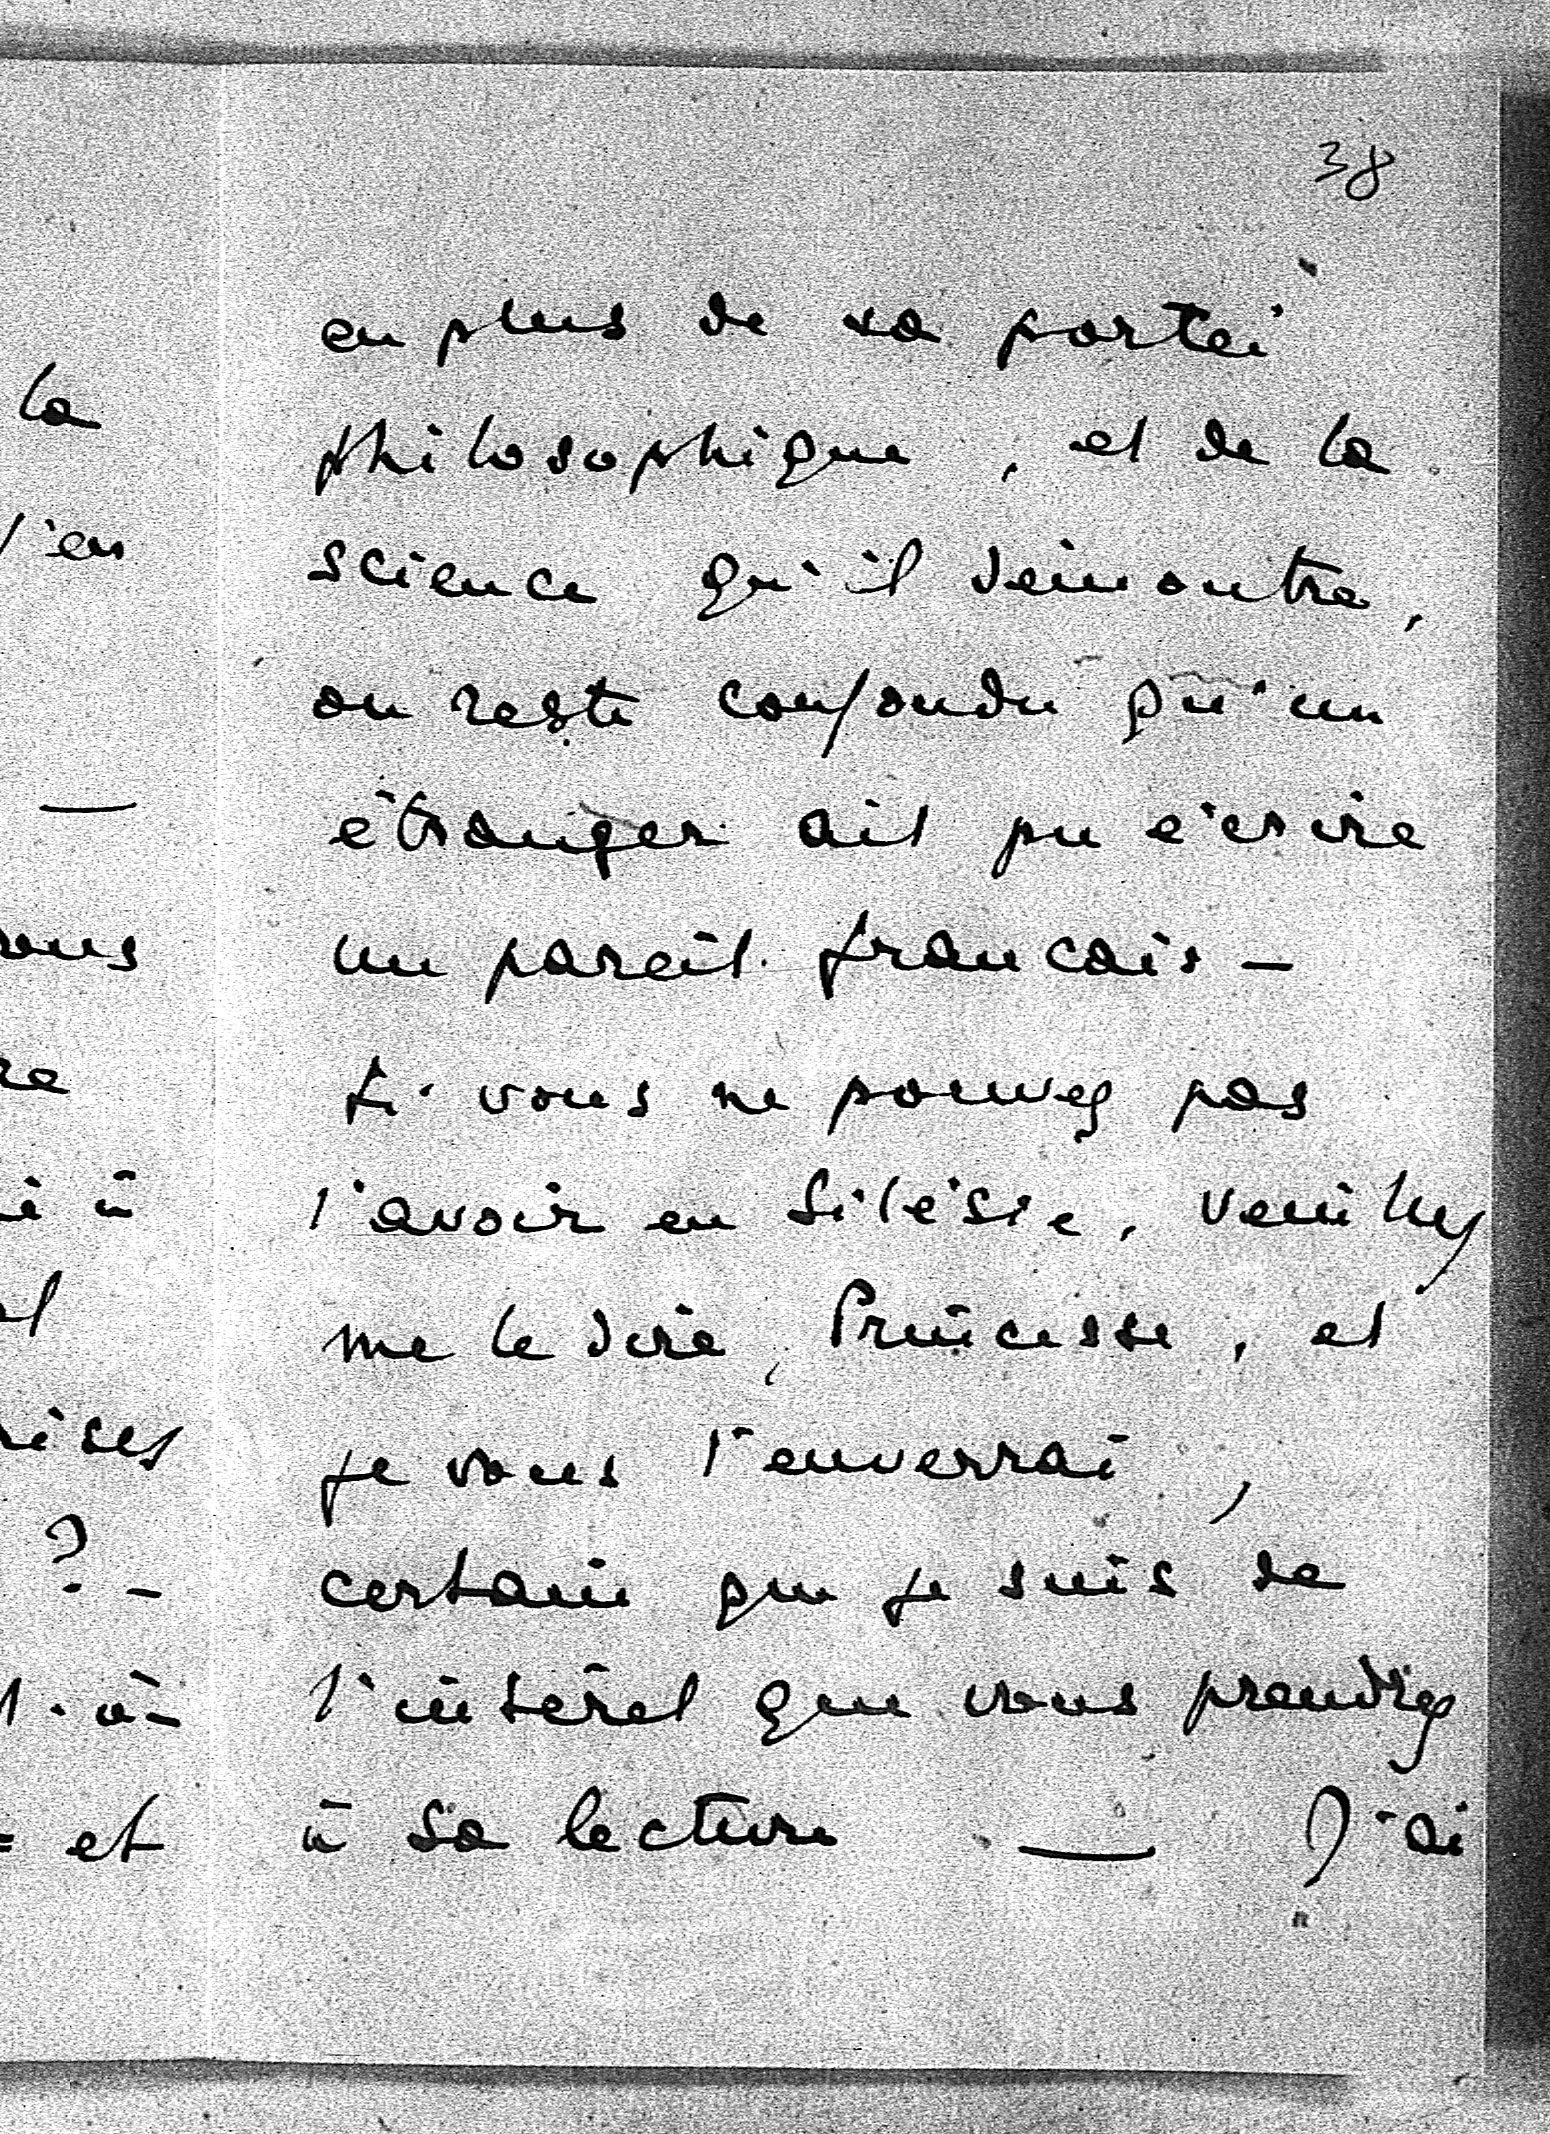 38
la
l'en
—
vous
re
à
et
rises
? —
et
en plus de sa portée
philosophique, et de la
science qu'il démontre,
on reste confondu qu'un
étranger ait pu écrire
un pareil français —
Si vous ne pouvez pas
l'avoir en Silésie, veuillez
me le dire, Princesse, et
je vous l'enverrai,
certain que je suis de
l'intérêt que vous prendrez
à sa lecture — J'ai